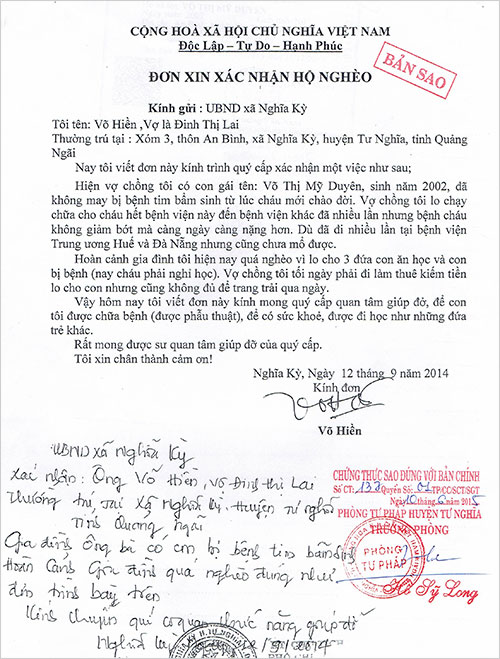 CỘNG HOÀ XÃ HỘI CHỦ NGHĨA VIỆT NAM
Độc Lập – Tự Do – Hạnh Phúc
BẢN SAO
ĐƠN XIN XÁC NHẬN HỘ NGHÈO
Kính gửi : UBND xã Nghĩa Kỳ
Tôi tên: Võ Hiền ,Vợ là Đinh Thị Lai
Thường trú tại : Xóm 3, thôn An Bình, xã Nghĩa Kỳ, huyện Tư Nghĩa, tỉnh Quảng
Ngãi
Nay tôi viết đơn này kính trình quý cấp xác nhận một việc như sau;
Hiện vợ chồng tôi có con gái tên: Võ Thị Mỹ Duyên, sinh năm 2002, đã
không may bị bệnh tim bẩm sinh từ lúc cháu mới chào đời. Vợ chồng tôi lo chạy
chữa cho cháu hết bệnh viện này đến bệnh viện khác đã nhiều lần nhưng bệnh cháu
không giảm bớt mà càng ngày càng nặng hơn. Dù đã đi nhiều lần tại bệnh viện
Trung ương Huế và Đà Nẵng nhưng cũng chưa mổ được.
Hoàn cảnh gia đình tôi hiện nay quá nghèo vì lo cho 3 đứa con ăn học và con
bị bệnh (nay cháu phải nghỉ học). Vợ chồng tôi tối ngày phải đi làm thuê kiếm tiền
lo cho con nhưng cũng không đủ để trang trải qua ngày.
Vậy hôm nay tôi viết đơn này kính mong quý cấp quan tâm giúp đở, để con
tôi được chữa bệnh (được phẫu thuật), để có sức khoẻ, được đi học như những đứa
trẻ khác.
Rất mong được sư quan tâm giúp dỡ của quý cấp.
Tôi xin chân thành cảm ơn!
Nghĩa Kỳ, Ngày 12 tháng 9 năm 2014
Kính đơn
Võ Hiền
UBND xã Nghĩa Kỳ
Xác nhận: Ông Võ Hiền, Vợ Đinh Thị Lai
Thường trú tại xã Nghĩa Kỳ, Huyện Tư Nghĩa
Tỉnh Quảng Ngãi
Gia đình ông bà có con bị bệnh tim bẩm sinh
Hoàn cảnh Gia đình quá nghèo đúng như
đơn trình bày trên
Kính chuyển quí cơ quan chức năng giúp đỡ
Nghĩa Kỳ /9/2014
CHỨNG THỰC SAO ĐÚNG VỚI BẢN CHÍNH
Số CT: 133 Quyển Số: 01 TP/CCSCT/SGT
Ngày 10 tháng 6 năm 2015
PHÒNG TƯ PHÁP HUYỆN TƯ NGHĨA
TRƯỞNG PHÒNG
PHÒNG
TƯ PHÁP
Hồ Sỹ Long